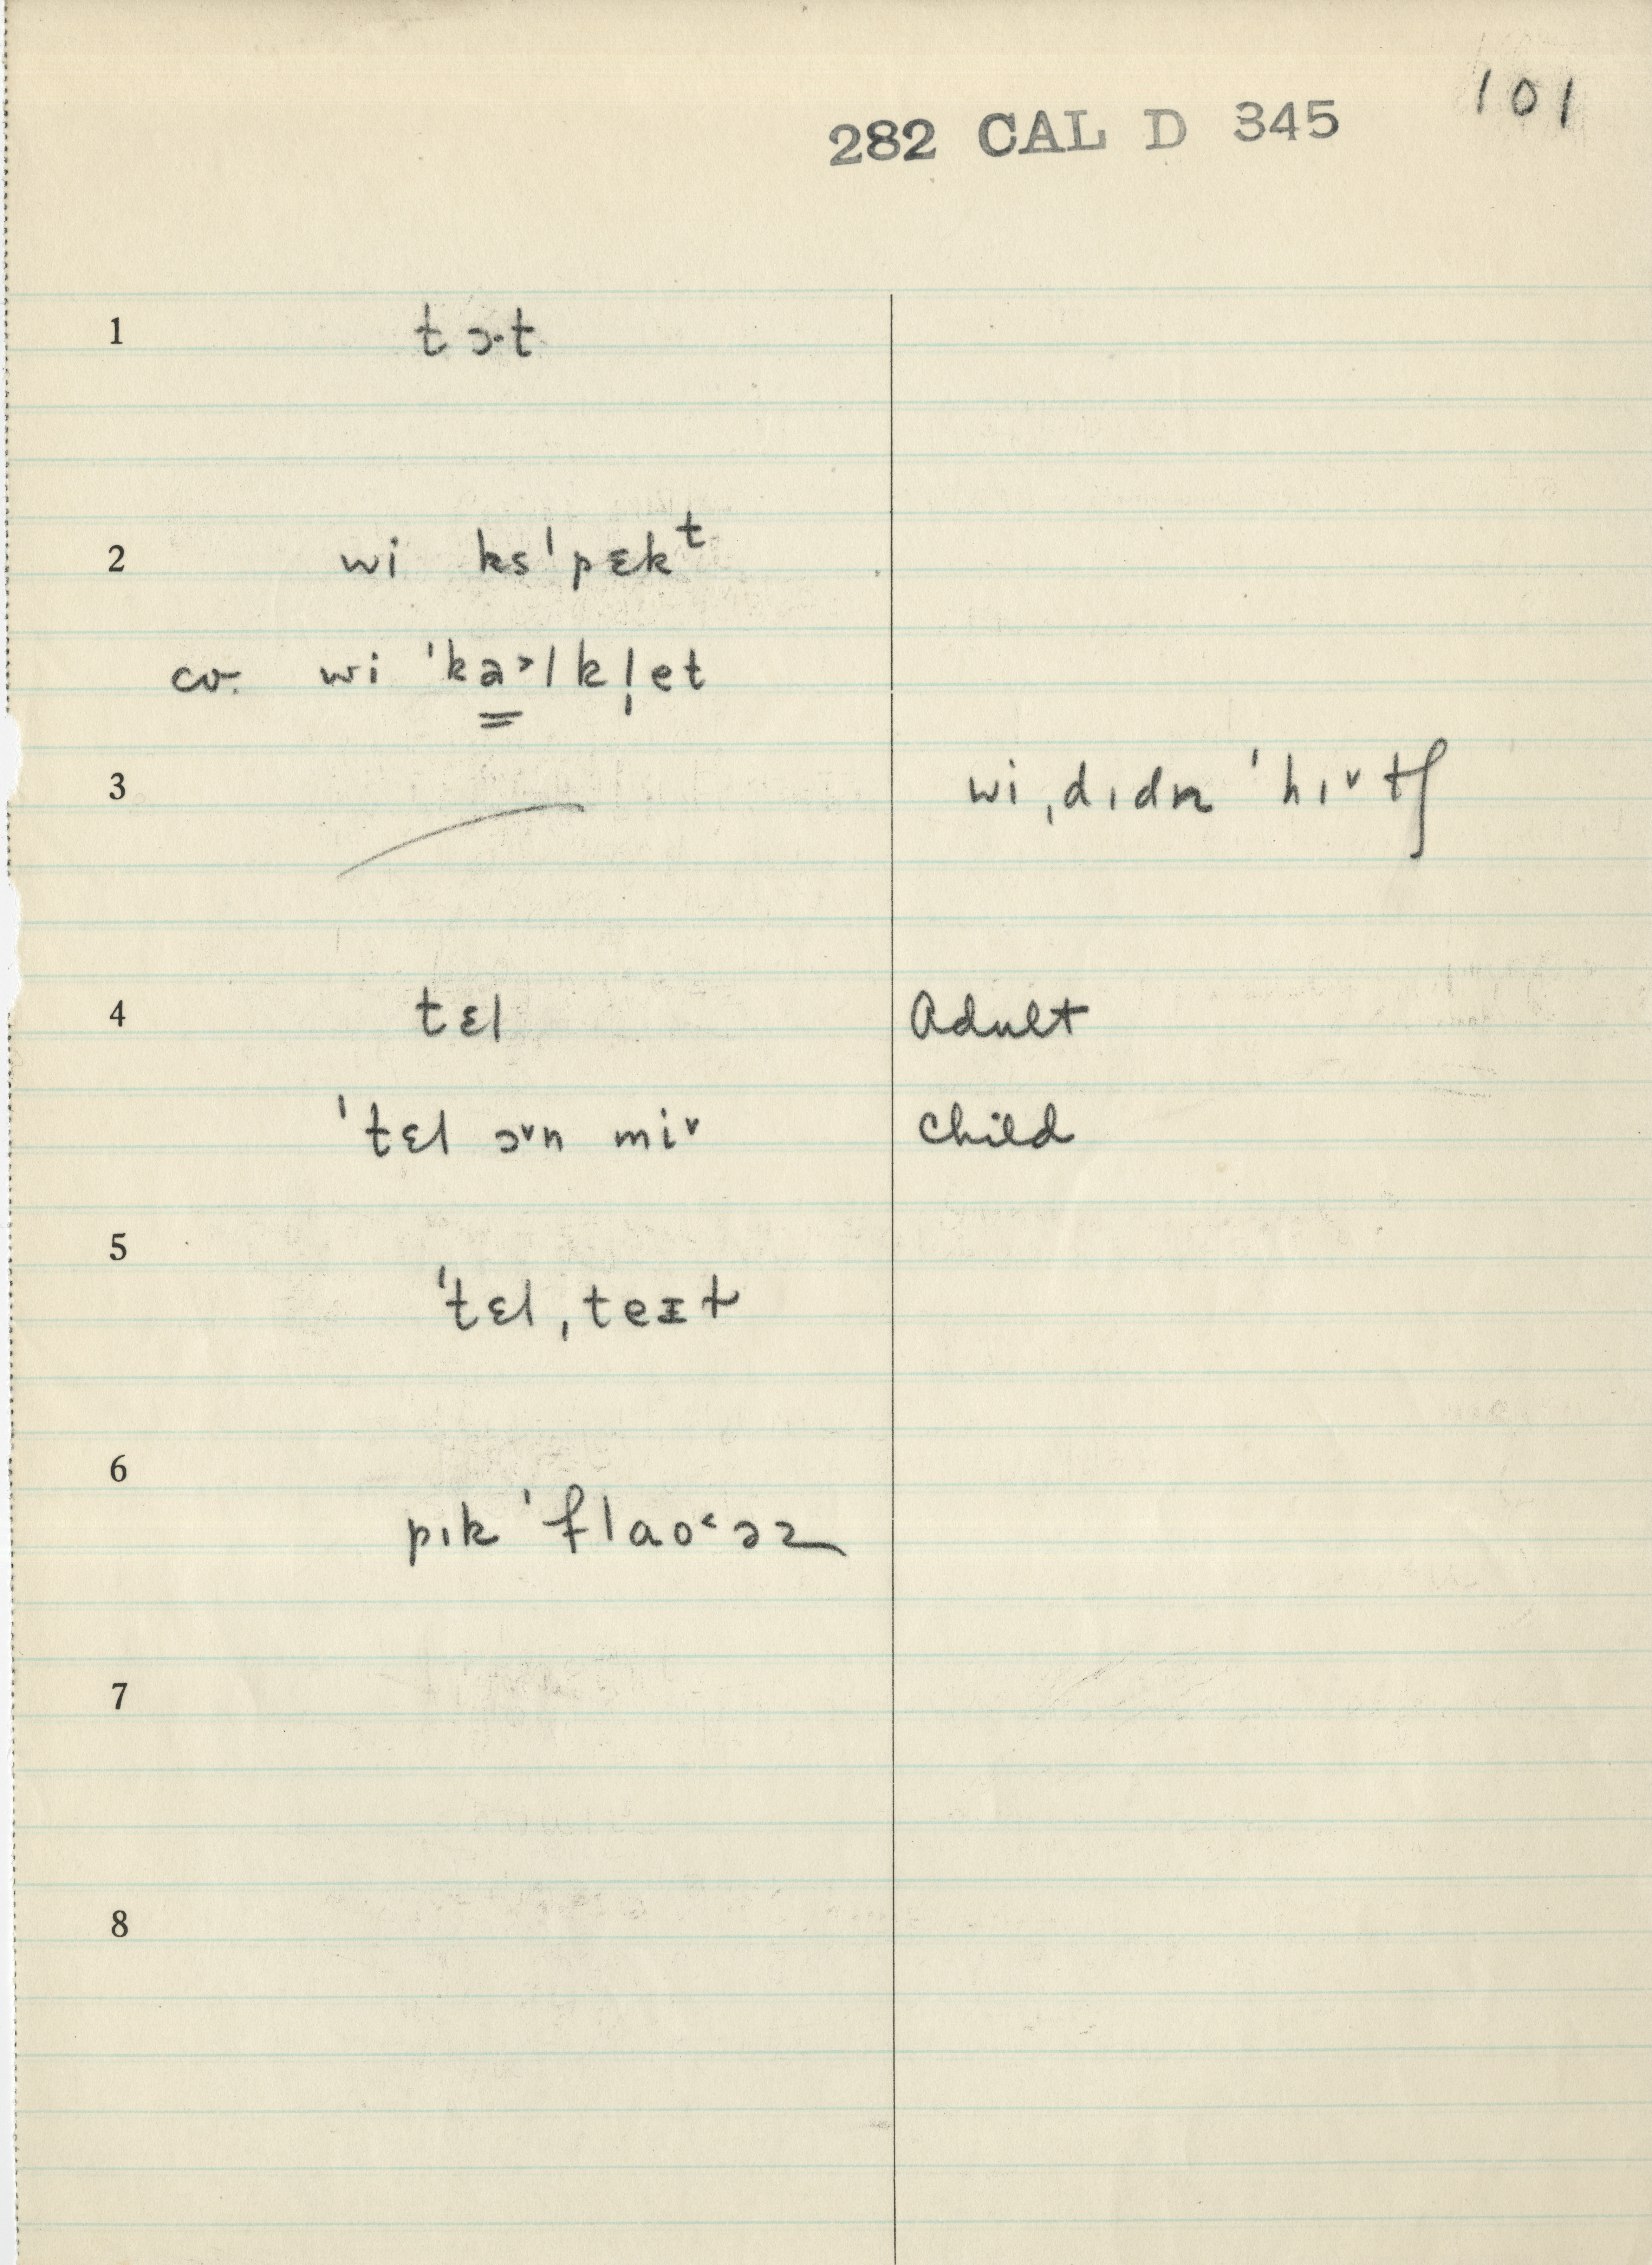 101
282 CAL D 345
1 tɔ·t
2 wi ksˈpɛkᵗ
cv. wi ˈka˃lkl̩et
3 wiˌdɪdn̩ ˈhɪ˅tʃ
4 tɛl Adult
ˈtɛl ɔ˅n mi˅ Child
5 ˈtɛlˌteɪt
6 pɪk ˈflaʊ˂əz
7
8